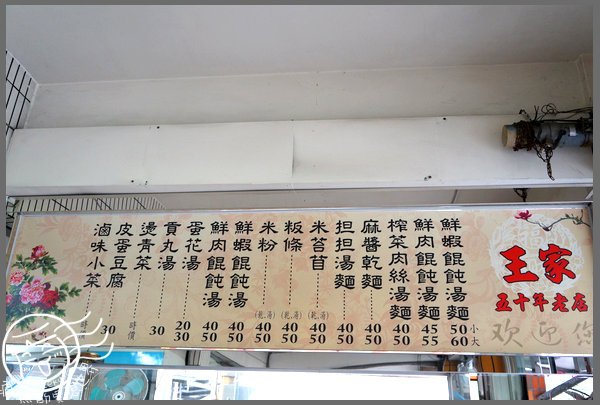 王家
五十年老店
歡迎您
小
大
鮮蝦餛飩湯麵 50 60
鮮肉餛飩湯麵 45 55
榨菜肉絲湯麵 40 50
麻醬乾麵 40 50
担担湯麵 40 50
米苔苜 (乾,湯) 40 50
粄條 (乾,湯) 40 50
米粉 (乾,湯) 40 50
鮮蝦餛飩湯 40 50
鮮肉餛飩湯 40 50
蛋花湯 20 30
貢丸湯 30
燙青菜 時價
皮蛋豆腐 30
滷味小菜